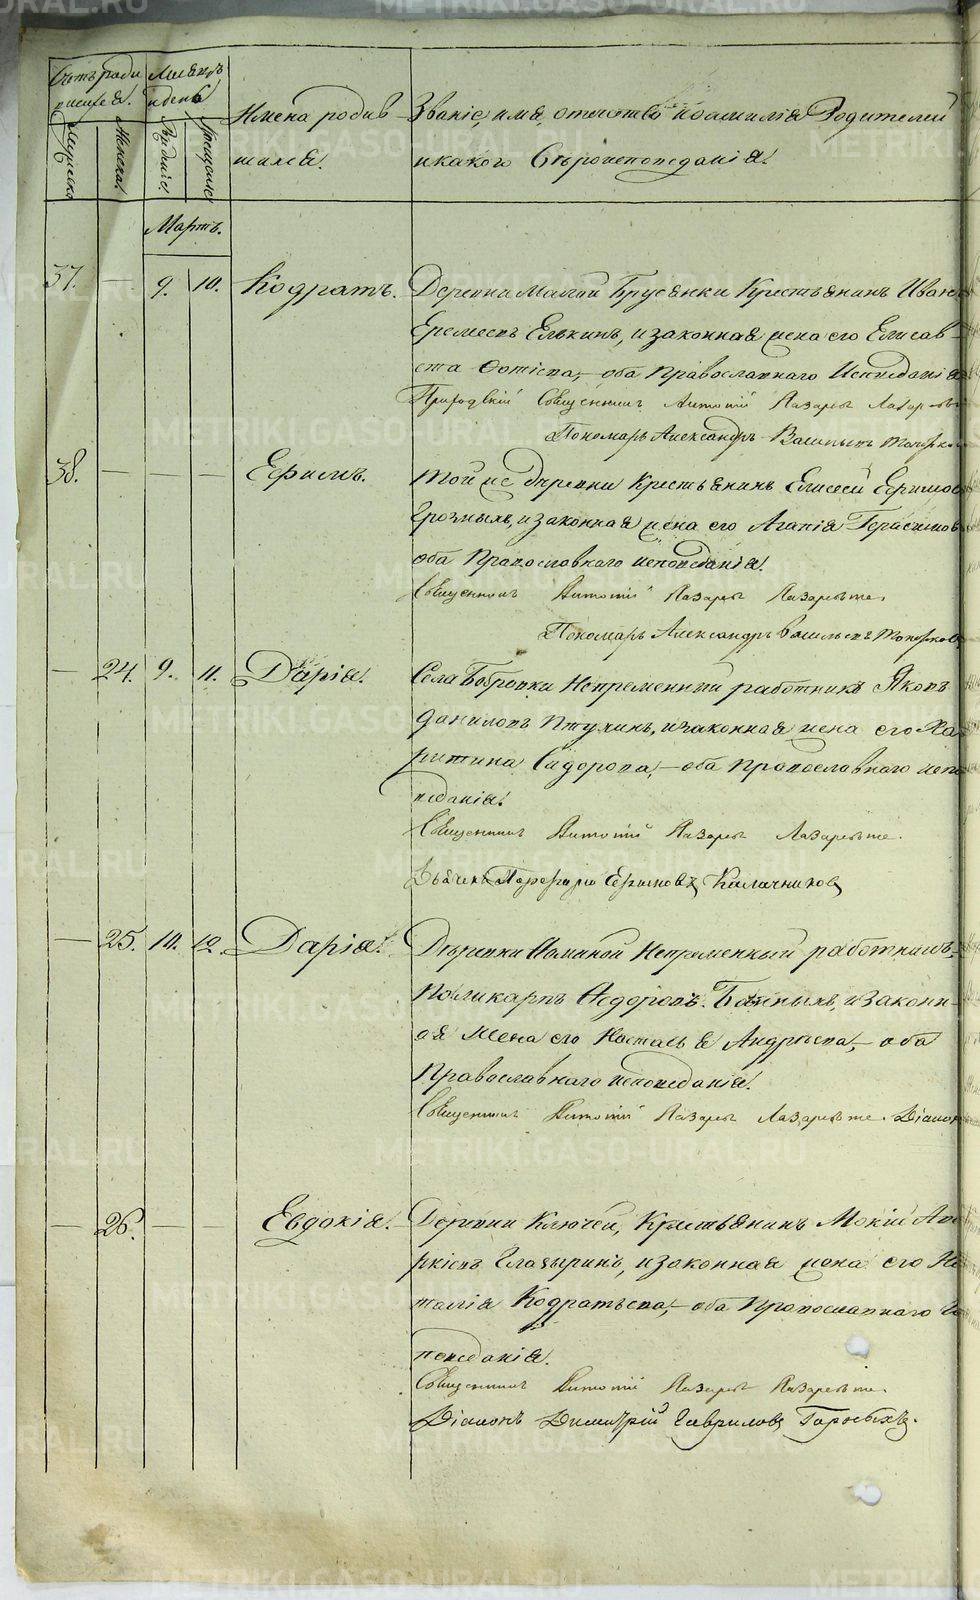 Счетъ роди
вшихся.
Мѣсяцъ
и день
Мужеска
Женска.
Рожденія.
Крещенія.
Имена родив
шихся.
Званіе, имя, отчество и фамилія Родителей
и какого Вѣроисповеданія.
Мартъ.
37. — 9. 10. Кодратъ. Деревни Малой Брусянки Крестьянинъ Иван
Еремеевъ Елькинъ, и законная жена его Елисав-
ета Фотіева, – оба Православнаго Исповеданія
Приходскій Священникъ Антоній Лазаревъ
Пономарь Александръ Васильевъ Топорков
38. — — — Ефимъ. Той же деревни Крестьянинъ Елисей Ефимов
и законная жена его Агапія Герасимов
оба Православнаго исповеданія.
Священникъ Антоній Лазаревъ
Пономарь Александръ Васильевъ Топорков
— 24. 9. 11. Дарія. Села Бобровки Непременный работникъ Яковъ
Даниловъ Птухинъ, и законная жена его Ха
ритина Сидорова, – оба Православнаго испо
веданія.
Священникъ Антоній Лазаревъ
Дьячекъ Ефимовъ Калачниковъ
— 25. 10. 12. Дарія. Деревни Непременный работникъ,
Поликарпъ Федоровъ. и законн-
ая жена его Настасья Андреева, – оба
Православнаго исповеданія.
Священникъ Антоній Лазаревъ Діакон
— 26. — — Евдокія. Деревни Ключей, Крестьянинъ Мокій Аве
ркіевъ Глазыринъ, и законная жена его На
талія Кодратьева, – оба Православнаго Ис
поведанія.
Священникъ Антоній Лазаревъ
Діаконъ Димитрій Гавриловъ Горныхъ.
METRIKI.GASO-URAL.RU